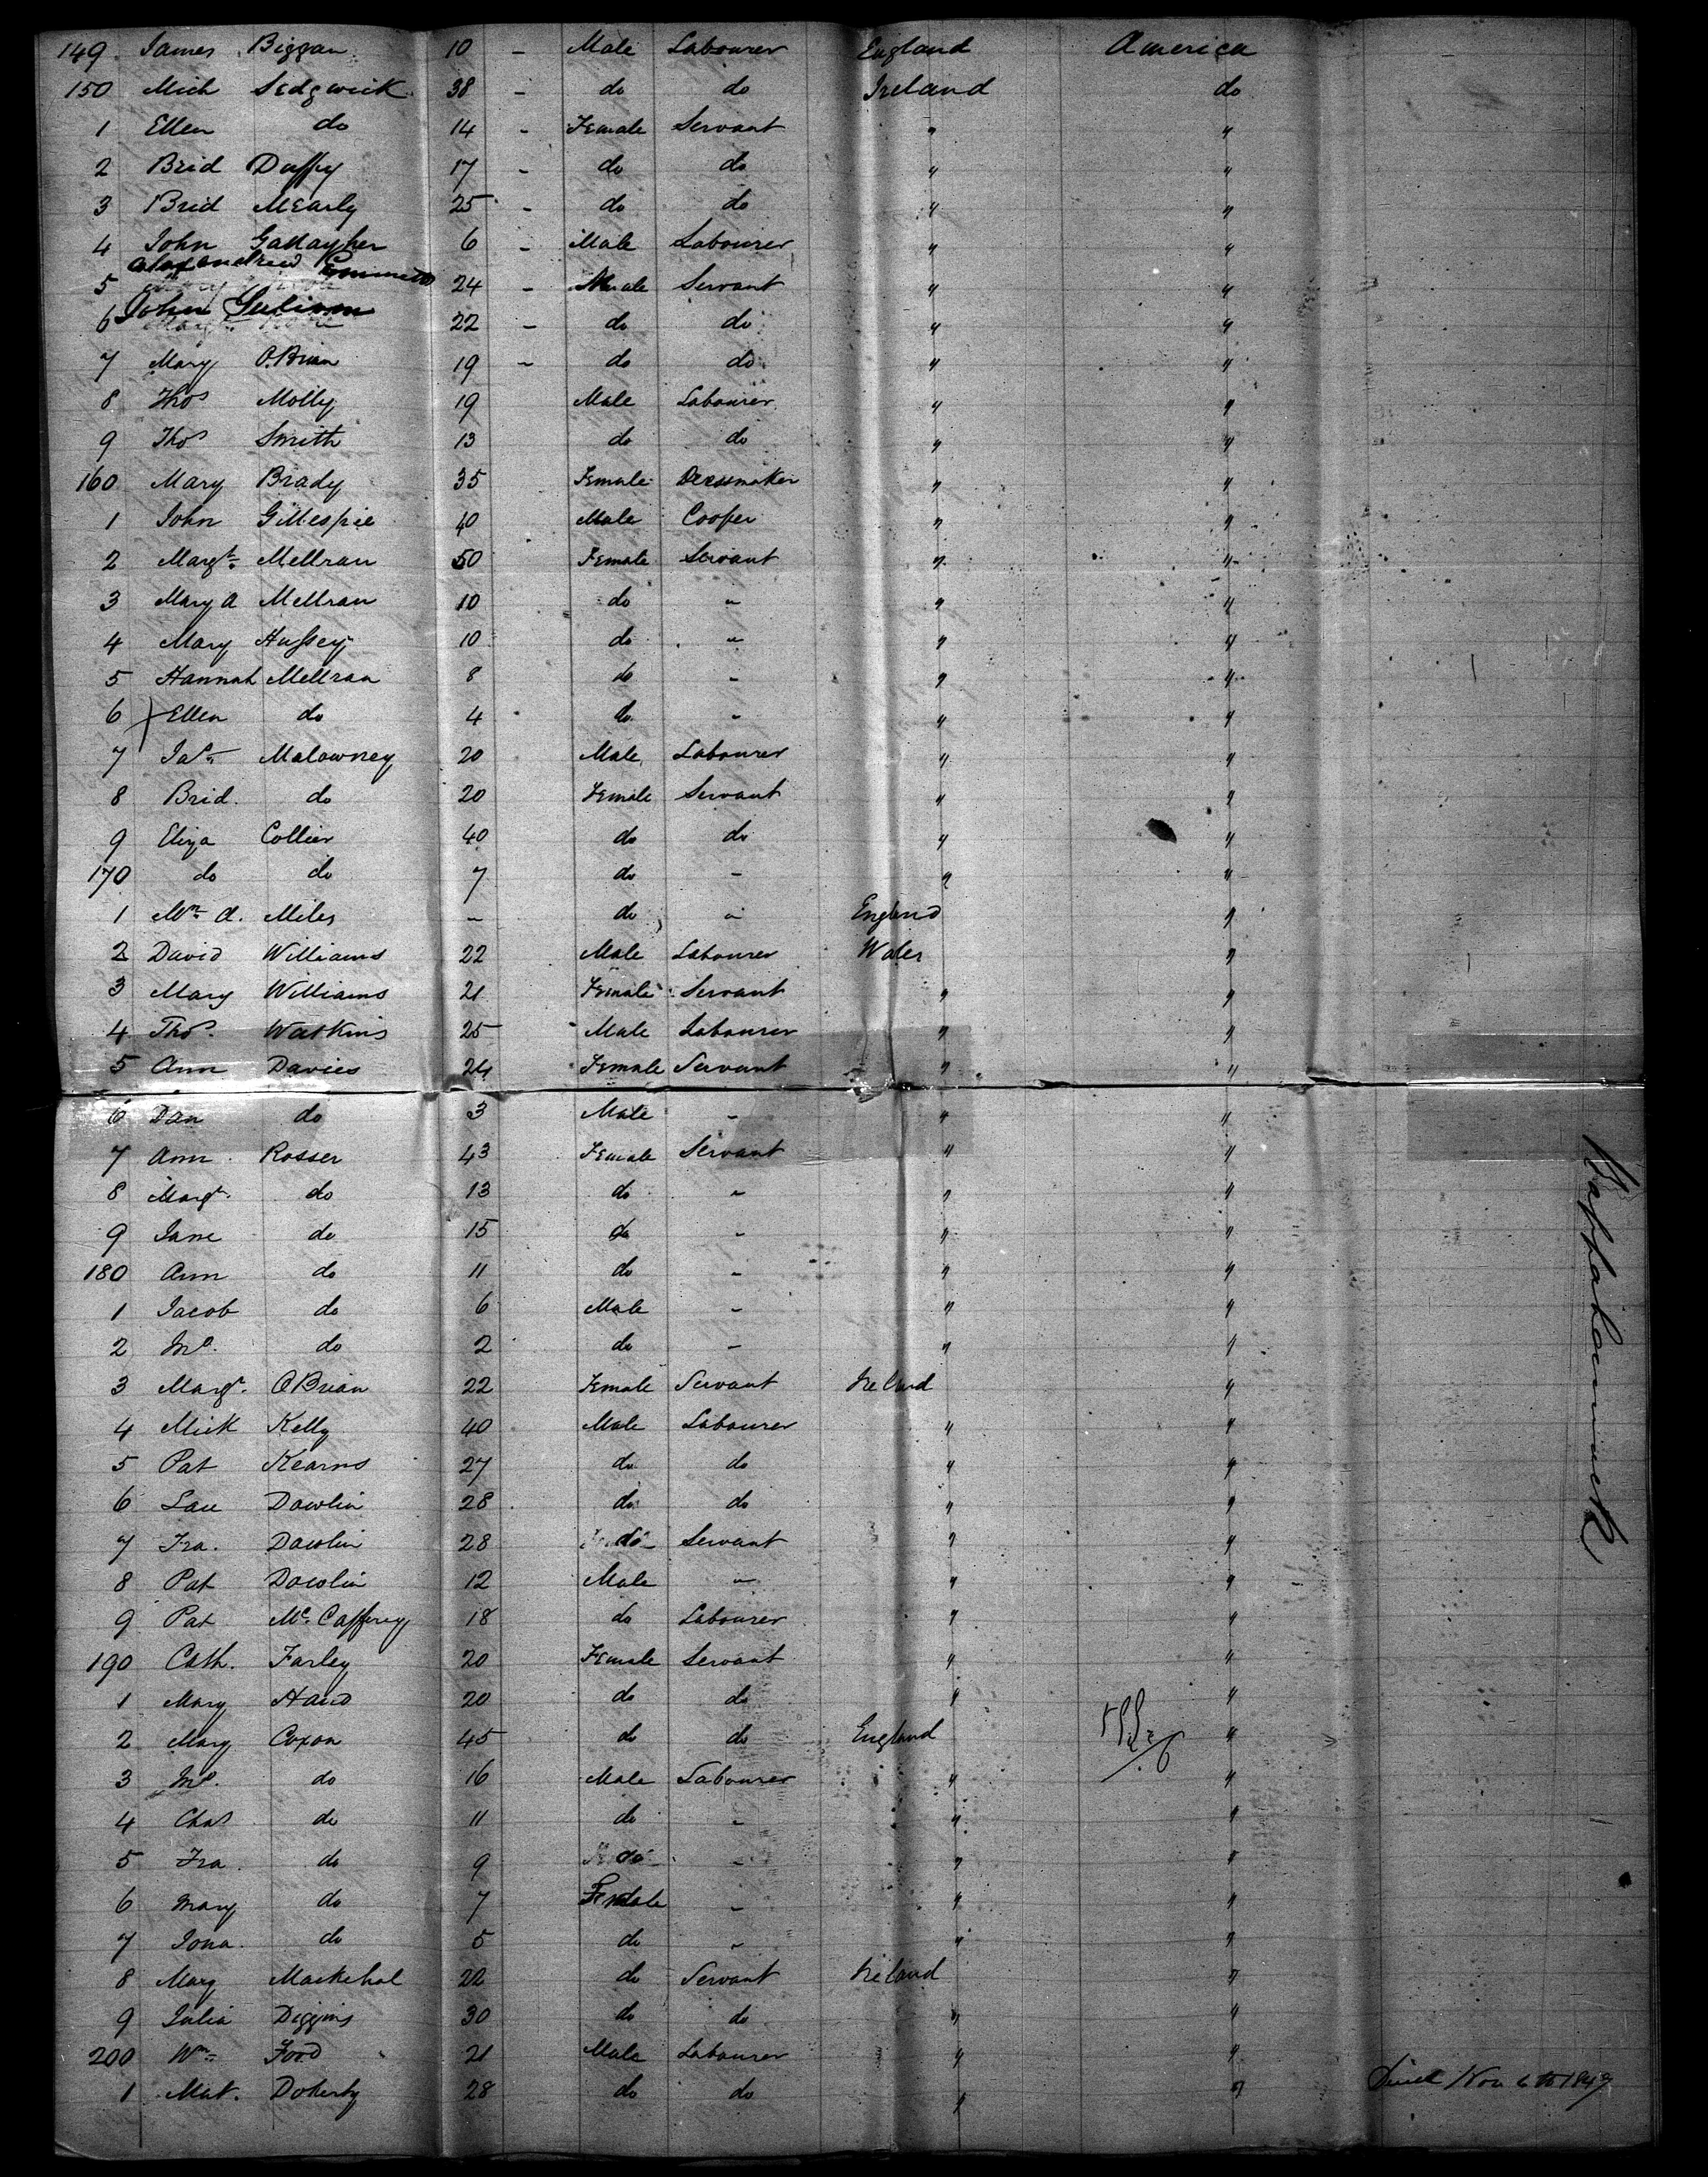 149 James Biggan 10 - Male Labourer England America
150 Mich Sedgwick 38 - do do Ireland do
1 Ellen do 14 - Female Servant " "
2 Brid Duffy 17 - do do " "
3 Brid MEarly 25 - do do " "
4 John Gallagher 6 - Male Labourer " "
5 24 - Male Servant " "
6 John 22 - do do " "
7 Mary O.Brian 19 - do do " "
8 Thos Molly 19 Male Labourer " "
9 Thos Smith 13 do do " "
160 Mary Brady 35 Female Dressmaker " "
1 John Gillespie 40 Male Cooper " "
2 Margt Mellran 50 Female Servant " "
3 Mary A Mellran 10 do " " "
4 Mary Hussey 10 do " " "
5 Hannah Mellran 8 do - " "
6 Ellen do 4 do - " "
7 Jas Malowney 20 Male Labourer " "
8 Brid. do 20 Female Servant " "
9 Eliza Collier 40 do do " "
170 do do 7 do - " "
1 A. Miles - do " England "
2 David Williams 22 Male Labourer Wales "
3 Mary Williams 21 Female Servant " "
4 Thos. Watkins 25 Male Labourer " "
5 Ann Davies 24 Female Servant " "
6 Dan do 3 Male - " "
7 Ann Rosser 43 Female Servant " "
8 Margt. do 13 do - " "
9 Jane do 15 do - " "
180 Ann do 11 do - " "
1 Jacob do 6 Male - " "
2 Jno. do 2 do - " "
3 Margt. OBrian 22 Female Servant Ireland "
4 Mick Kelly 40 Male Labourer " "
5 Pat Kearns 27 do do " "
6 Lau Dowlin 28 do do " "
7 Fra. Dowlin 28 do Servant " "
8 Pat Dowlin 12 Male " " "
9 Pat Mc. Caffery 18 do Labourer " "
190 Cath. Farley 20 Female Servant " "
1 Mary Hand 20 do do " "
2 Mary Coxon 45 do do England "
3 Jno. do 16 Male Labourer " "
4 Chas do 11 do - " "
5 Fra do 9 do - " "
6 Mary do 7 Female - " "
7 Jona. do 5 do - " "
8 Mary Mackehal 22 do Servant Ireland "
9 Julia Diggins 30 do do " "
200 Wm Food 21 Male Labourer " "
1 Mat. Doherty 28 do do " "
Rappahannock
Nov 6th 1849